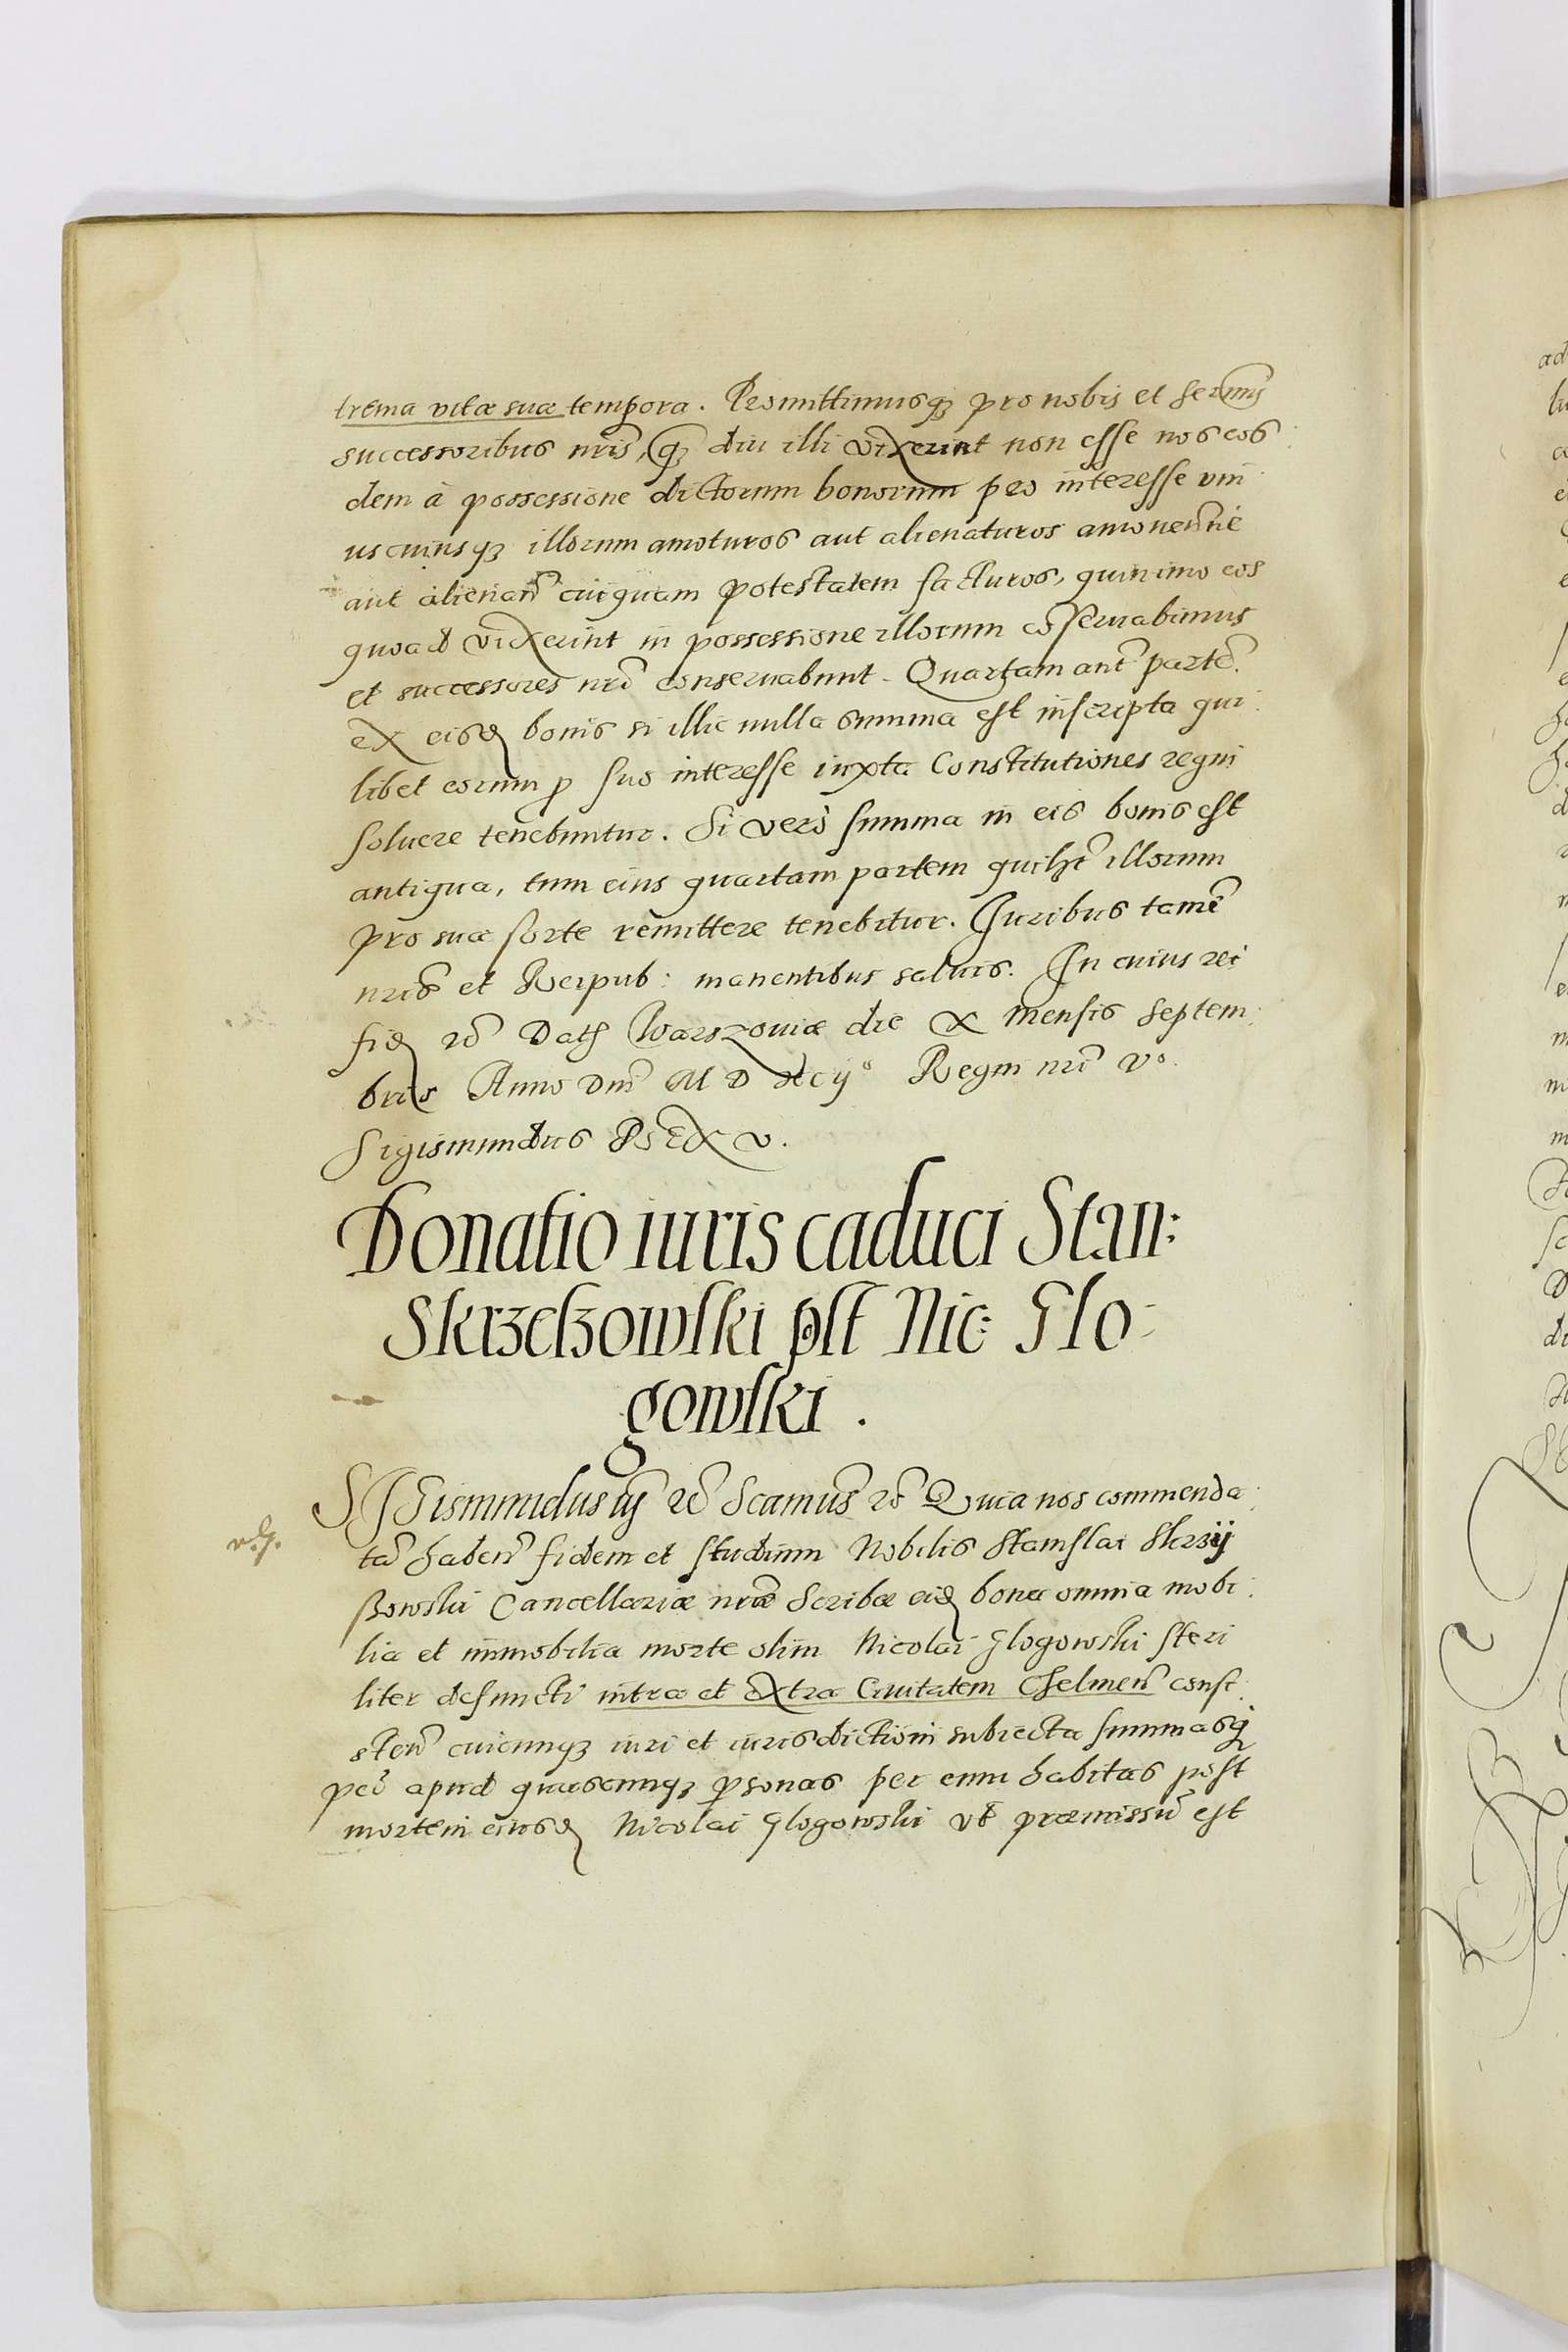 trema vitæ suæ tempora. Promittimusq₃ pro nobis et ser͠mis
successoribus nr̃is, q₃ diu illi vixerint non esse nos eos
dem à possessione dictorum bonorum pro interesse vni
uscuiusq₃ illorum amoturos aut alienaturos amouen̄ue
aut alienan̄ cuiquam potestatem facturos, quinimo eos
quoad vixerint in possessione illorum cōseruabimus
et successores nr̃i conseruabunt. Quartam aut̃ partē
ex eisd bonis si illic nulla summa est inscripta qui
libet eorum p suo interesse iuxta Constitutiones regni
soluere tenebuntur. Si verò summa in eis bonis est
antiqua, tum eius quartam partem quilꝫt illorum
pro sua sorte remittere tenebitur. Iuribus tamē
nr̃is et Reipub: manentibus saluis. In cuius rei
fid rẽ Dat Warszouiæ die X mensis Septem
bris Anno Dnĩ M D XCij° Regni nr̃i V°
Sigismundus Rex
Donatio iuris caduci Stan:
Skrzetzowski pst Nic: Glo
gowski.
SIGismundus iij rẽ Scamus rẽ Quia nos commenda
tā haben̄ fidem et studium Nobilis Stanislai Skrzij
szowski Cancellariæ nr̃æ Scribæ eid bona omnia mobi
lia et immobilia morte olim Nicolai Glogowski steri
liter defuncti intra et extra Ciuitatem Chelmen̄ consi
sten̄ cuicunq₃ iuri et iurisdictioni subiecta summasq₃
pec̃ apud quascunq₃ psonas per eum habitas post
mortem eiusd Nicolai Glogowski vt præmissū est